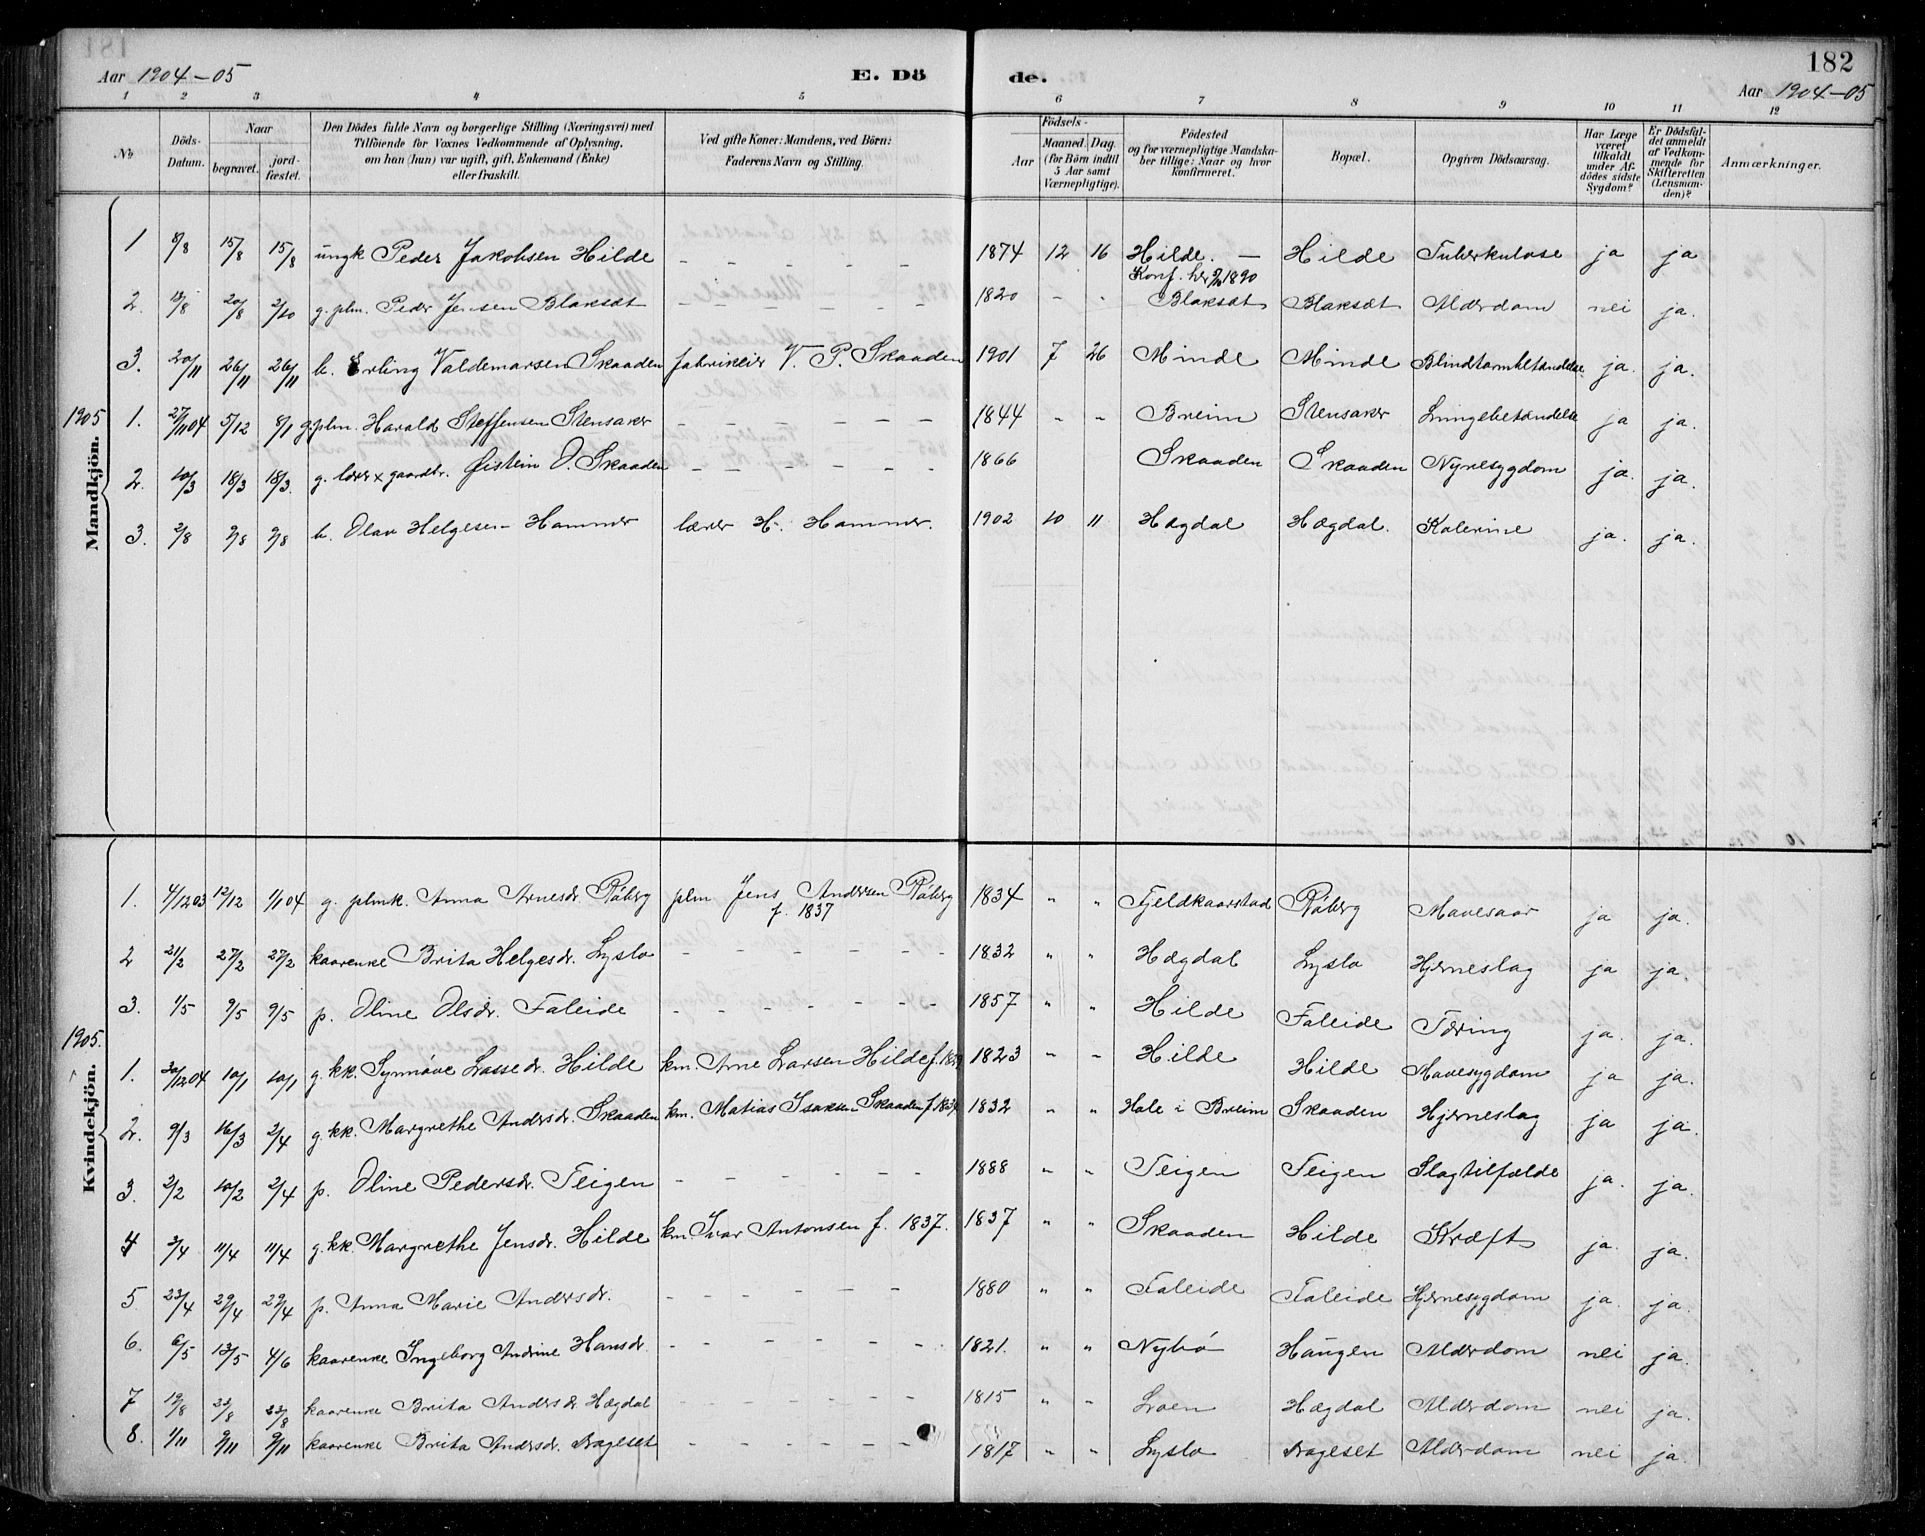 181
182
Aar 1904-05
E. Dö
de.
Aar 1904-05
1 2 3 4 5 6 7 8 9 10 11 12
№ | Döds-Datum. | Naar begravet. | jord-fæstet. | Den Dödes fulde Navn og borgerlige Stilling (Næringsvei) med Tilföiende for Voxnes Vedkommende af Oplysning, om han (hun) var ugift, gift, Enkemand (Enke) eller fraskilt. | Ved gifte Koner: Mandens, ved Börn: Faderens Navn og Stilling. | Födsels- Aar | Maaned. Dag. (for Börn indtil 5 Aar samt Værnepligtige). | Födested og for værnepligtige Mandskaber tillige: Naar og hvor konfirmeret. | Bopæl. | Opgiven Dödsaarsag. | Har Læge været tilkaldt under Afdödes sidste Sygdom? | Er Dödsfaldet anmeldt af Vedkommende for Skifteretten (Lensmanden)? | Anmærkninger.
Mandkjön.
1 8/8 15/8 15/8 ungk Peder Jakobsen Hilde - - - - - - 1874 12 16 Hilde. - Hilde Tuberkulose ja ja
Konf. her 1890
2. 13/8 20/8 2/10 g. plm. Peder Jensen Blaksæt - - - - - 1820 - - Blaksæt Blaksæt Alderdom nei ja.
3. 20/11 26/11 26/11 b. Erling Valdemarsen Skaaden fabrikeier V. P. Skaaden 1901 7 26 Minde Minde Blindtarmbetændelse ja. ja.
1905 1. 27/11 04 5/12 8/1 g. plm. Harald Steffensen Stensaker - - - - - - 1844 - - Breim Stensaker Lungebetændelse ja ja.
2. 10/3 18/3 18/3. g. lærer x gaardbr. Øistein O. Skaaden - - - - - - 1866 Skaaden Skaaden Nyresygdom ja. ja.
3. 2/8 9/8 9/8 b. Olav Helgesen Hammer lærer H. Hammer. 1902 10 11 Hægdal Hægdal. Kolerine ja. ja.
Kvindekjön.
1. 4/12 03 12/12 1/1 04 g. plmk. Anna Arnesdr Råberg plm Jens Andersen Råberg 1834 " " Fjeldkaarstad Råberg Mavesaar ja ja.
f. 1837
2 21/2 27/2 27/2 kaarenke Brita Helgesdr. Lyslo - - - - - - 1832 " " Hægdal Lyslo Hjerneslag ja ja.
3. 1/5 9/5 9/5 p. Oline Olsdr. Faleide - - - - - - 1857 " " Hilde Faleide Tæring ja. ja.
1905. 1. 30/12 04 10/1 10/1 g. kk. Synnøve Lassedr. Hilde km. Arne Larsen Hilde 1823 " - Hilde Hilde Mavesygdom ja ja.
2. 9/3 16/3 2/4 g. kk. Margrethe Andersdr. Skaaden km. Matias Isaksen Skaaden f. 1834 1832 " " Hole i Breim Skaaden Hjerneslag ja ja.
3. 2/2 10/2 2/4 p. Oline Pedersdr. Teigen - - - - - - 1888 " " Teigen Teigen Slagtilfælde ja. ja.
4 3/4 11/4 11/4 g. kk. Margrethe Jensdr. Hilde km. Ivar Antonsen f. 1837. 1837 " " Skaaden Hilde Kræft ja. ja.
5 23/4 29/4 29/4 p. Anna Marie Andersdr. - - - - - - 1880 " " Faleide Faleide Hjernesygdom ja. ja.
6. 6/5 13/5 4/6 kaarenke Ingeborg Andrine Hansdr. - - - - - - 1821. " " Nybö Haugen Alderdom nei ja.
7 19/8 23/8 23/8 kaarenke Brita Andersdr Hægdal - - - - - - 1815 " " Loen Hægdal Alderdom nei ja.
8. 1/11 9/11 9/11 kaarenke Brita Andersdr. Drageset - - - - - - 1817 " " Lyslo Drageset Alderdom nei ja.